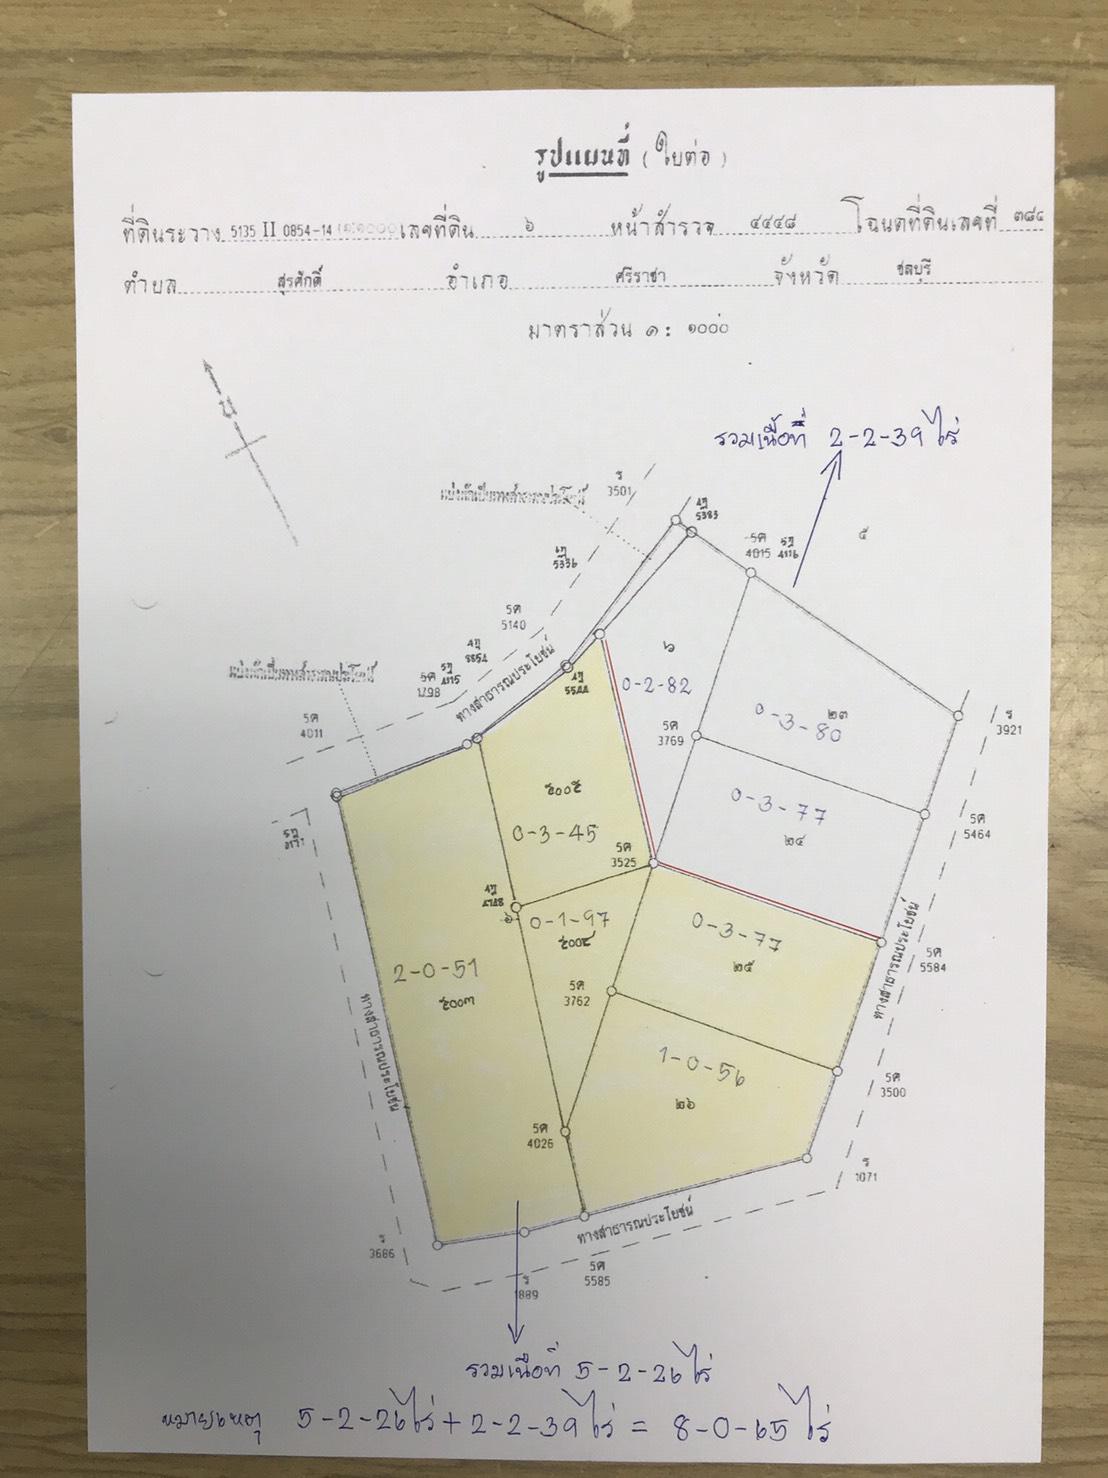 รูปแผนที่ (ใบต่อ)
ที่ดินระวาง 5135 II 0854-14 เลขที่ดิน ๖ หน้าสำรวจ ๔๔๔๘ โฉนดที่ดินเลขที่
ตำบล สุรศักดิ์ อำเภอ ศรีราชา จังหวัด ชลบุรี
มาตราส่วน ๑ : ๑๐๐๐
น
รวมเนื้อที่ 2-2-39 ไร่
ร
3501
แบ่งหักเป็นทางสาธารณประโยชน์
5383
5ค
4015
๕
5336
5ค
5140
ทางสาธารณประโยชน์
แบ่งหักเป็นทางสาธารณประโยชน์
5ค
1798
5544
๖
0-2-82
5ค
4011
5ค
3769
๒๓
0-3-80
ร
3921
0-3-77
๒๔
5ค
5464
๕๐๐๕
0-3-45
5ค
3525
๖
0-1-97
๕๐๐๔
0-3-77
๒๕
5ค
5584
ทางสาธารณประโยชน์
2-0-51
๕๐๐๓
5ค
3762
ทางสาธารณประโยชน์
1-0-56
๒๖
5ค
3500
5ค
4026
ร
1071
ร
3686
ทางสาธารณประโยชน์
5ค
5585
ร
1889
รวมเนื้อที่ 5-2-26 ไร่
หมายเหตุ 5-2-26 ไร่ + 2-2-39 ไร่ = 8-0-65 ไร่